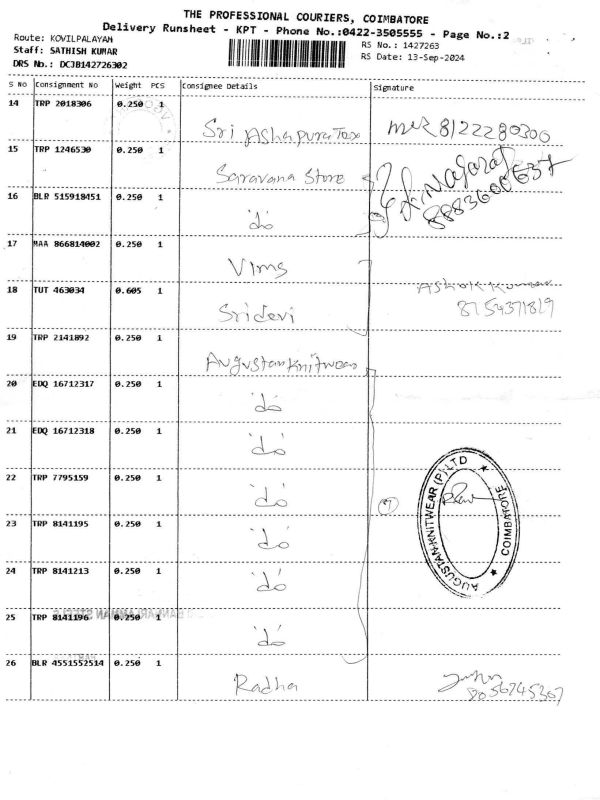 THE PROFESSIONAL COURIERS, COIMBATORE
Delivery Runsheet - KPT - Phone No.:0422-3505555 - Page No.:2
Route: KOVILPALAYAM
Staff: SATHISH KUMAR
DRS No.: DCJB142726302
RS No.: 1427263
RS Date: 13-Sep-2024
S NO Consignment No Weight PCS Consignee Details Signature
14 TRP 2018306 0.250 1
Sri Ashapura Tex 8122280300
15 TRP 1246530 0.250 1
Saravana Store Nagaraj
8883600637
16 BLR 515918451 0.250 1
'do'
17 MAA 866814002 0.250 1
Vims
18 TUT 463034 0.605 1 Ashok Kumar
Sridevi 8754371819
19 TRP 2141892 0.250 1
Augustan Knitwear
20 EDQ 16712317 0.250 1
'do'
21 EDQ 16712318 0.250 1
'do'
22 TRP 7795159 0.250 1
'do' (7)
AUGUSTAN KNITWEAR (P) LTD
COIMBATORE
23 TRP 8141195 0.250 1
'do'
24 TRP 8141213 0.250 1
'do'
25 TRP 8141196 0.250 1
'do'
26 BLR 4551552514 0.250 1
Radha 8056745367